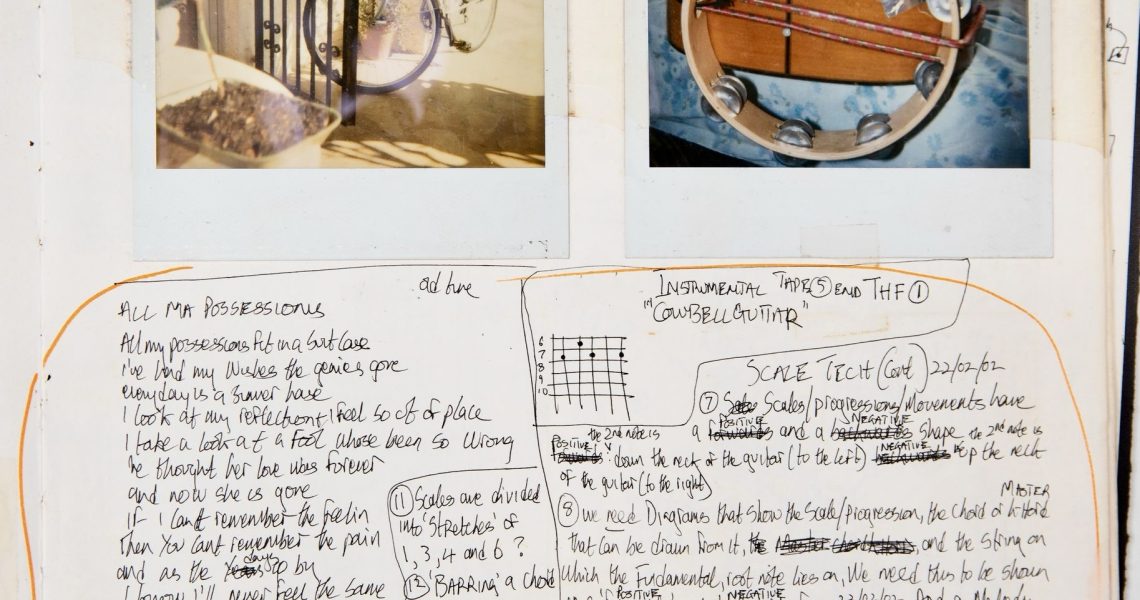 ad tune
ALL MA POSSESSIONS
All my possessions fit in a suitcase
i've had my wishes the genies gone
everyday is a summer haze
I look at my reflection + I feel so out of place
I take a look at a fool whose been so wrong
he thought her love was forever
and now she is gone
If I can't remember the feelin
Then you can't remember the pain
and as the days go by
I know I'll never feel the same
INSTRUMENTAL TAPE ⑤ END THF ①
"COWBELL GUITAR"
6
7
8
9
10
SCALE TECH (Cont) 22/02/02
⑦ Scales/progressions/Movements have
a POSITIVE and a NEGATIVE shape the 2nd note is
POSITIVE the 2nd note is down the neck of the guitar (to the left) NEGATIVE up the neck
of the guitar (to the right)
⑪ Scales are divided
into 'stretches' of
1, 3, 4 and 6 ?
⑬ 'BARRING' a chord
MASTER
⑧ We need Diagrams that show the Scale/progression, the chord or
that can be drawn from it, and the string on
which the Fundamental, root note lies on, We need this to be shown
POSITIVE NEGATIVE 22/02/02